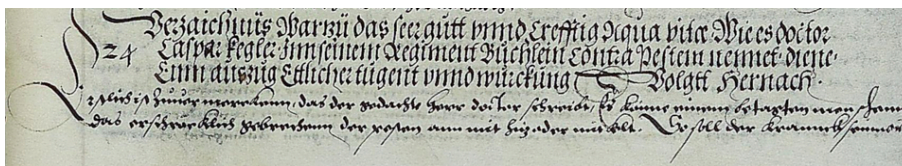 Verzaichnüs Warzü das seer gutt vnnd Crefftig Aqua vitæ Wie es doctor
24 Caspar kegler Jnn seinem Regiment Büchlein Contra Pestem nennet diene
Einn auszüg Ettlicher tugent vnnd würckung Volgtt Hernach.
Erstlich ist zuuer merckenn, das der gedachte herr doctor schreibt, Es könne einem betagten menschenn
das erschröcklich gebrechenn der pesten ann mit hitz oder mit kelt. So soll der kranck